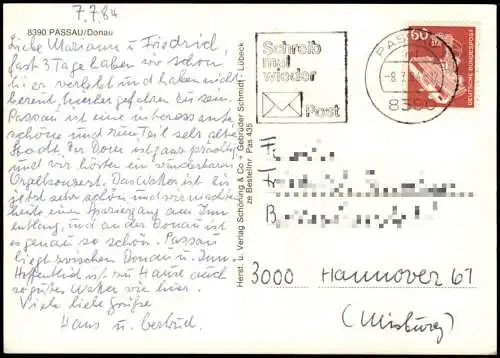 7.7.84
8390 PASSAU/Donau
Liebe Mariann u. Friedrid,
fast 3 Tage haben wir schon
hier verlebt und haben nicht
bereut, hierher gefahren zu sein.
Passau ist eine interessante
schöne und zum Teil sehr alte
Stadt. Der Dom ist ganz prächtig
und wir hörten ein wunderbares
Orgelkonzert. Das Wetter ist
jetzt sehr schön und wir machten
heute einen Spaziergang am Inn
entlang, und an der Donau ist
es genau so schön. Passau
liegt zwischen Donau u. Inn.
Hoffentlich ist zu Hause auch
so gutes Wetter wie hier.
Viele liebe Grüße
Hans u. Gertrud.
Herst. u. Verlag Schöning & Co + Gebrüder Schmidt · Lübeck
Bestellnr. Pas 435
Schreib
mal
wieder
Post
PASSAU
8390
60
DEUTSCHE BUNDESPOST
3000 Hannover 61
(Misburg)